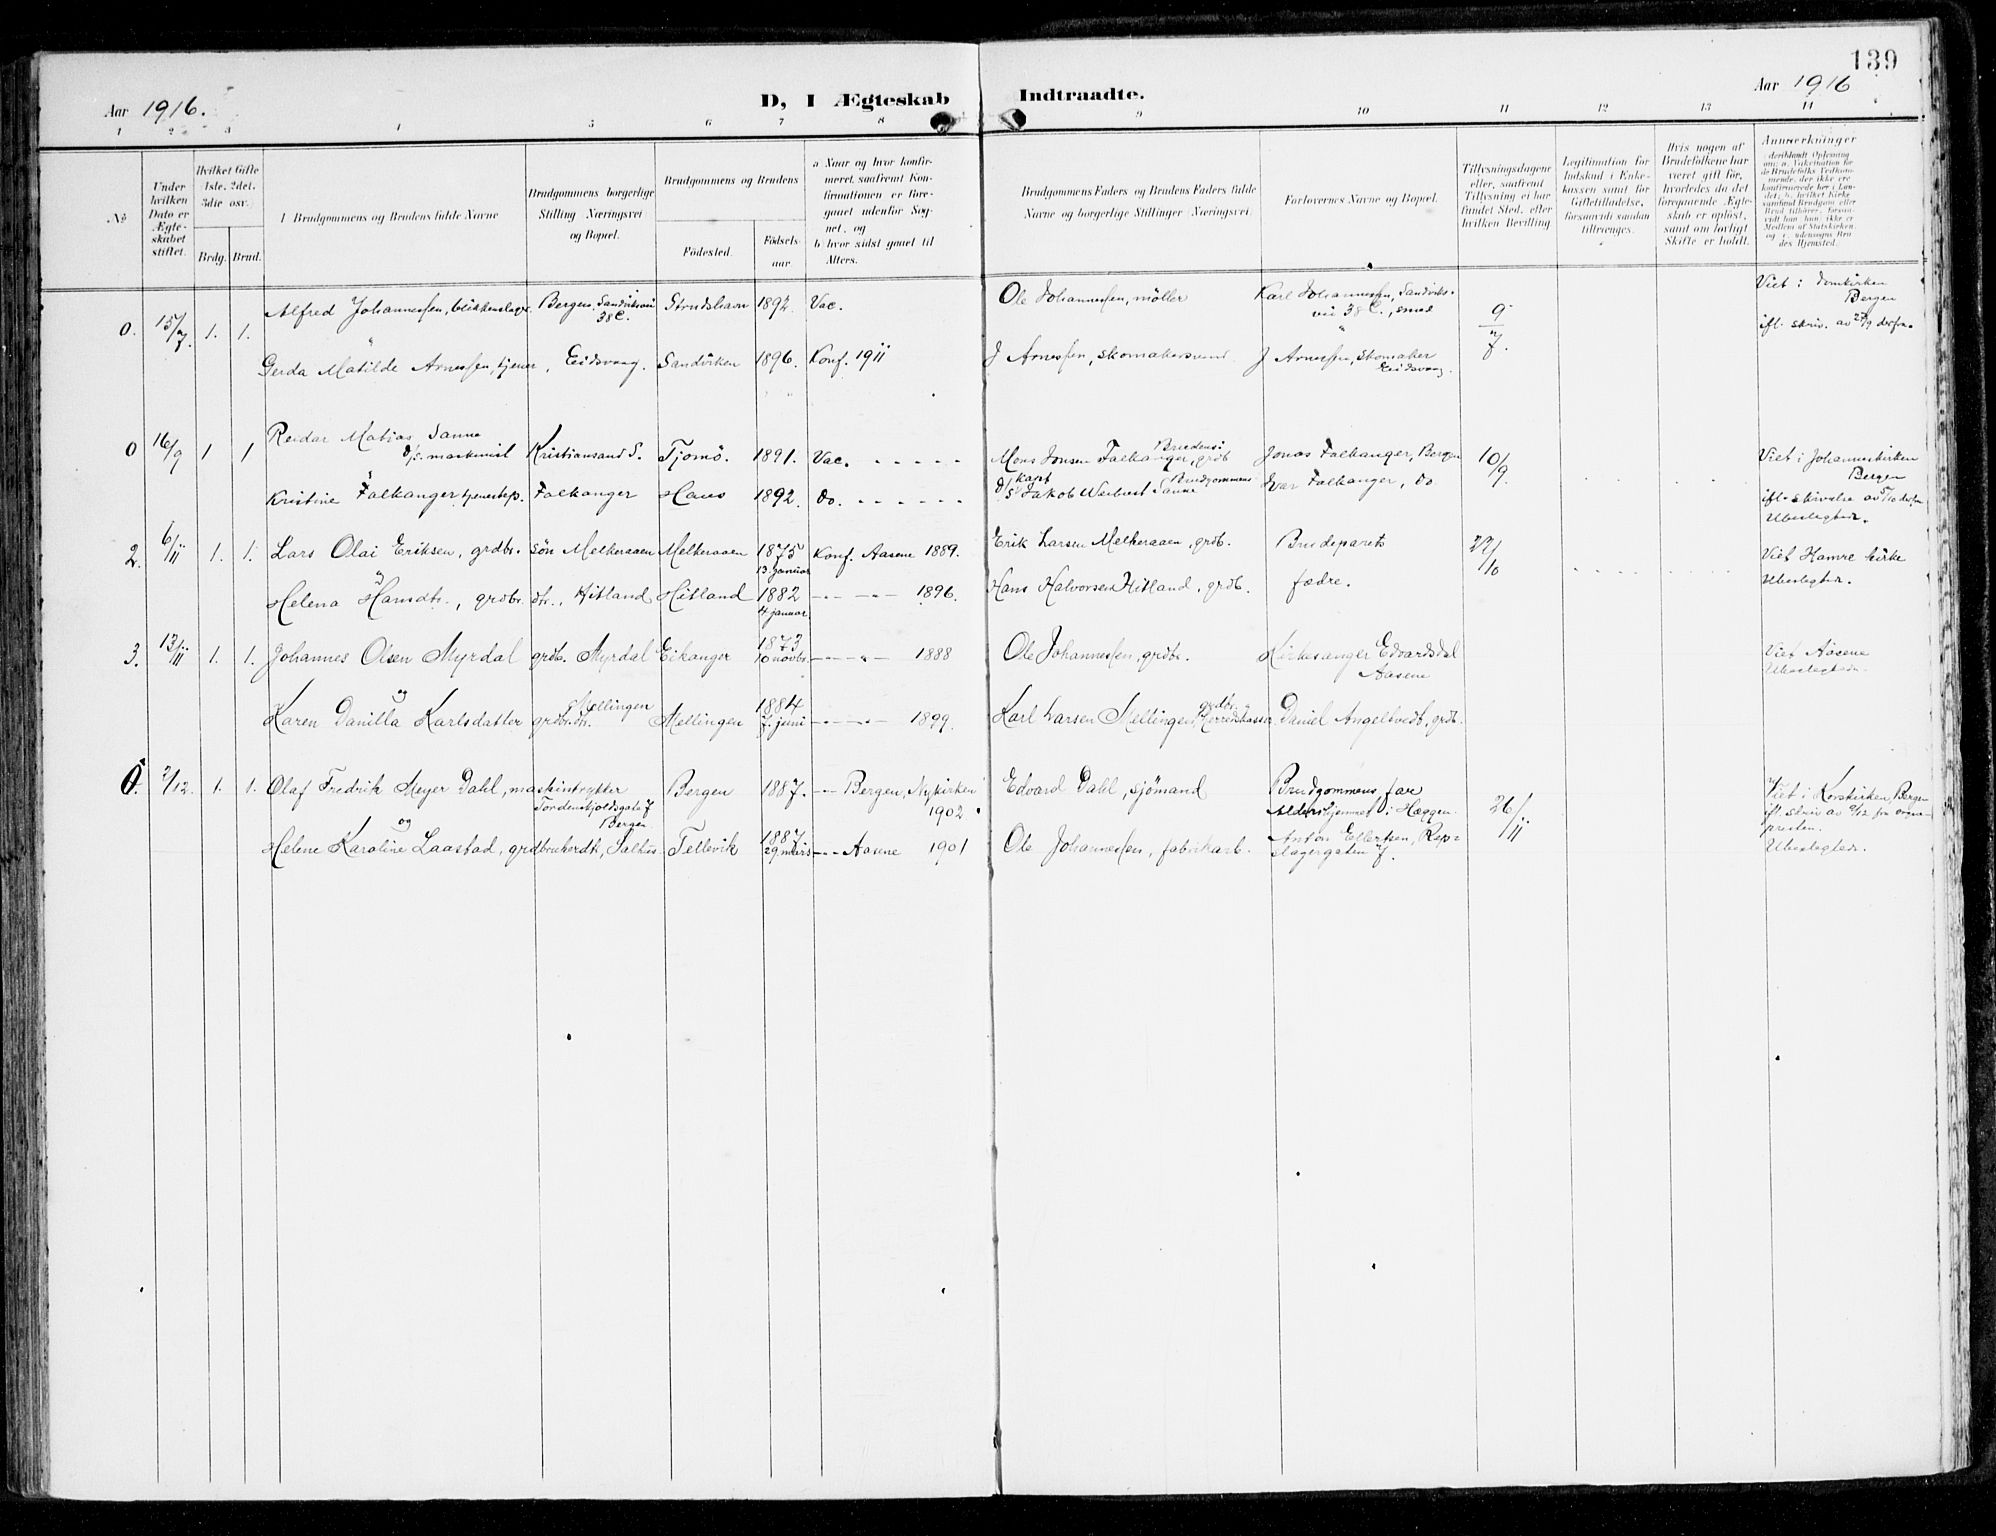 139
Aar 1916.
D, I Ægteskab Indtraadte.
Aar 1916
1 2 3 4 5 6 7 8 9 10 11 12 13 14
No
Under hvilken Dato er Ægteskabet stiftet.
Hvilket Gifte 1ste, 2det, 3die osv.
Brdg. Brud.
Brudgommens og Brudens fulde Navne
Brudgommens borgerlige Stilling Næringsvei og Bopæl.
Brudgommens og Brudens
Födested. Födselsaar.
a Naar og hvor konfirmeret, saafremt Konfirmationen er foregaaet udenfor Sognet, og
b hvor sidst gaaet til Alters.
Brudgommens Faders og Brudens Faders fulde Navne og borgerlige Stillinger (Næringsvei.
Forlovernes Navne og Bopæl.
Tillysningsdagene eller, saafremt Tillysning ei har fundet Sted, efter hvilken Bevilling
Legitimation for Indskud i Enkekassen samt for Giftetilladelse, forsaavidt saadan tiltrænges.
Hvis nogen af Brudefolkene har været gift før, hvorledes da det foregaaende Ægteskab er opløst, samt om lovligt Skifte er holdt.
Anmærkninger
0. 15/7. 1. 1. Alfred Johannessen, blikkenslager Bergen. Sandviksvei 38C. Strudshavn 1892. Vac. Ole Johannessen, møller Karl Johannessen, Sandviksvei 38 C., smed 9/7. Viet i Domkirken Bergen
ifl. skriv. av 27/9 derfra.
Gerda Matilde Arnessen, tjener, Eidsvaag. Sandviken 1896. Konf. 1911 J Arnessen, skomakersvend J Arnessen, skomaker Eidsvaag.
0 16/9 1 1 Reidar Matias Sanne d/s. maskinist Kristiansand S. Tjømö. 1891. Vac. Mons Jonsen Falkanger, grdb Brudens: Jonas Falkanger, Bergen 10/9. Viet i Johanneskirken Bergen
Kristine Falkanger tjenestep. Falkanger Haus 1892. do. d/s Kapt Jakob Sanne Brudgommens Ivar Falkanger, do ifl. skrivelse av 5/10 derfra
Ubeslegtede.
2. 6/11 1. 1. Lars Olai Eriksen, grdbr. søn Melkeraaen Melkeraaen 1875 13. januar Konf. Aasene 1889. Erik Larsen Melkeraaen, grdb. Brudeparets 22/10 Viet Hamre kirke
Ubeslegtede.
Helena Hansdtr., grdbr. dtr., Hitland Hitland 1882 4 januar — „ — 1896. Hans Halvorsen Hitland, grdb. fædre.
3. 13/11 1. 1. Johannes Olsen Myrdal grdb. Myrdal Eikanger 1873 10 novbr. — „ — 1888 Ole Johannessen, grdbr. Kirkesanger Edvardsdal Aasene Viet Aasene
Ubeslegtede.
og
Karen Danilla Karlsdatter grdbr. dtr. Mellingen Mellingen 1884 7. juni — „ — 1899. Karl Larsen Mellingen, grdbr. Herredskasser. Daniel Angeltvedt, grdb.
0. 2/12. 1. 1. Olaf Fredrik Meyer Dahl, maskintrykker Tordenskjoldsgate 7 Bergen Bergen 1887. — Bergen, Nykirken 1902. Edvard Dahl, sjömand Brudgommens far Aldershjemmet i Hæggen. 26/11 Viet i Korskirken, Bergen
ifl. skriv av 9/12 fra sognepresten.
Ubeslegtede.
og
Helene Karoline Laastad, grdbrukerdt, Salhus Tellevik 1887 29 mars — Aasene 1901 Ole Johannessen, fabrikarb. Anton Ellertsen, Repslagergaten 7.